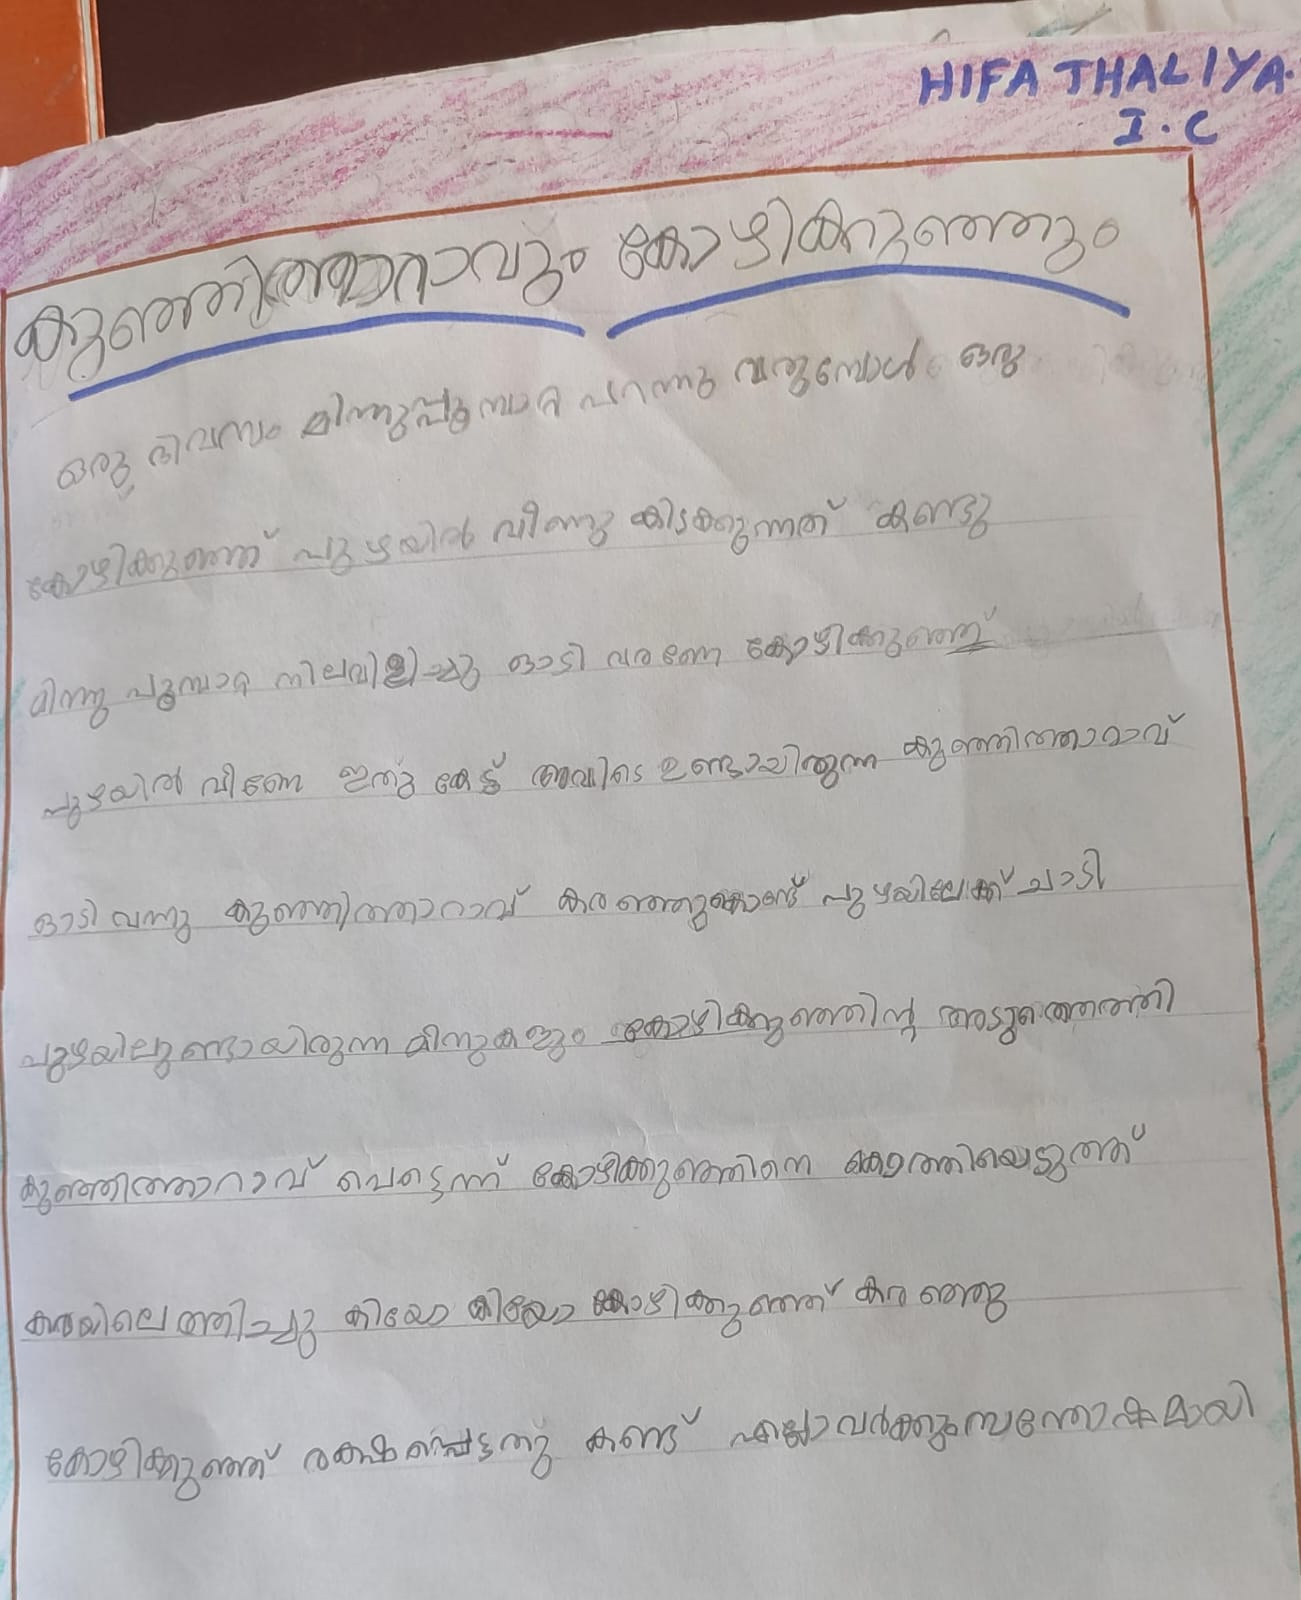 HIFA THALIYA.
I.C
കുഞ്ഞിത്താറാവും കോഴിക്കുഞ്ഞും
ഒരു ദിവസം മിന്നുപ്പൂമ്പാറ്റ പറന്നു വരുമ്പോൾ ഒരു
കോഴിക്കുഞ്ഞ് പുഴയിൽ വീണു കിടക്കുന്നത് കണ്ടു
മിന്നു പൂമ്പാറ്റ നിലവിളിച്ചു ഓടി വരണേ കോഴിക്കുഞ്ഞ്
പുഴയിൽ വീണേ ഇതു കേട്ട് അവിടെ ഉണ്ടായിരുന്ന കുഞ്ഞിത്താറാവ്
ഓടി വന്നു കുഞ്ഞിത്താറാവ് കരഞ്ഞുകൊണ്ട് പുഴയിലേക്ക് ചാടി
പുഴയിലുണ്ടായിരുന്ന മീനുകളും കോഴിക്കുഞ്ഞിന്റ അടുത്തെത്തി
കുഞ്ഞിത്താറാവ് പെട്ടെന്ന് കോഴിക്കുഞ്ഞിനെ കൊത്തിയെടുത്ത്
കരയിലെത്തിച്ചു കിയോ കിയോ കോഴിക്കുഞ്ഞ് കരഞ്ഞു
കോഴിക്കുഞ്ഞ് രക്ഷപ്പെട്ടതു കണ്ട് എല്ലാവർക്കും സന്തോഷമായി